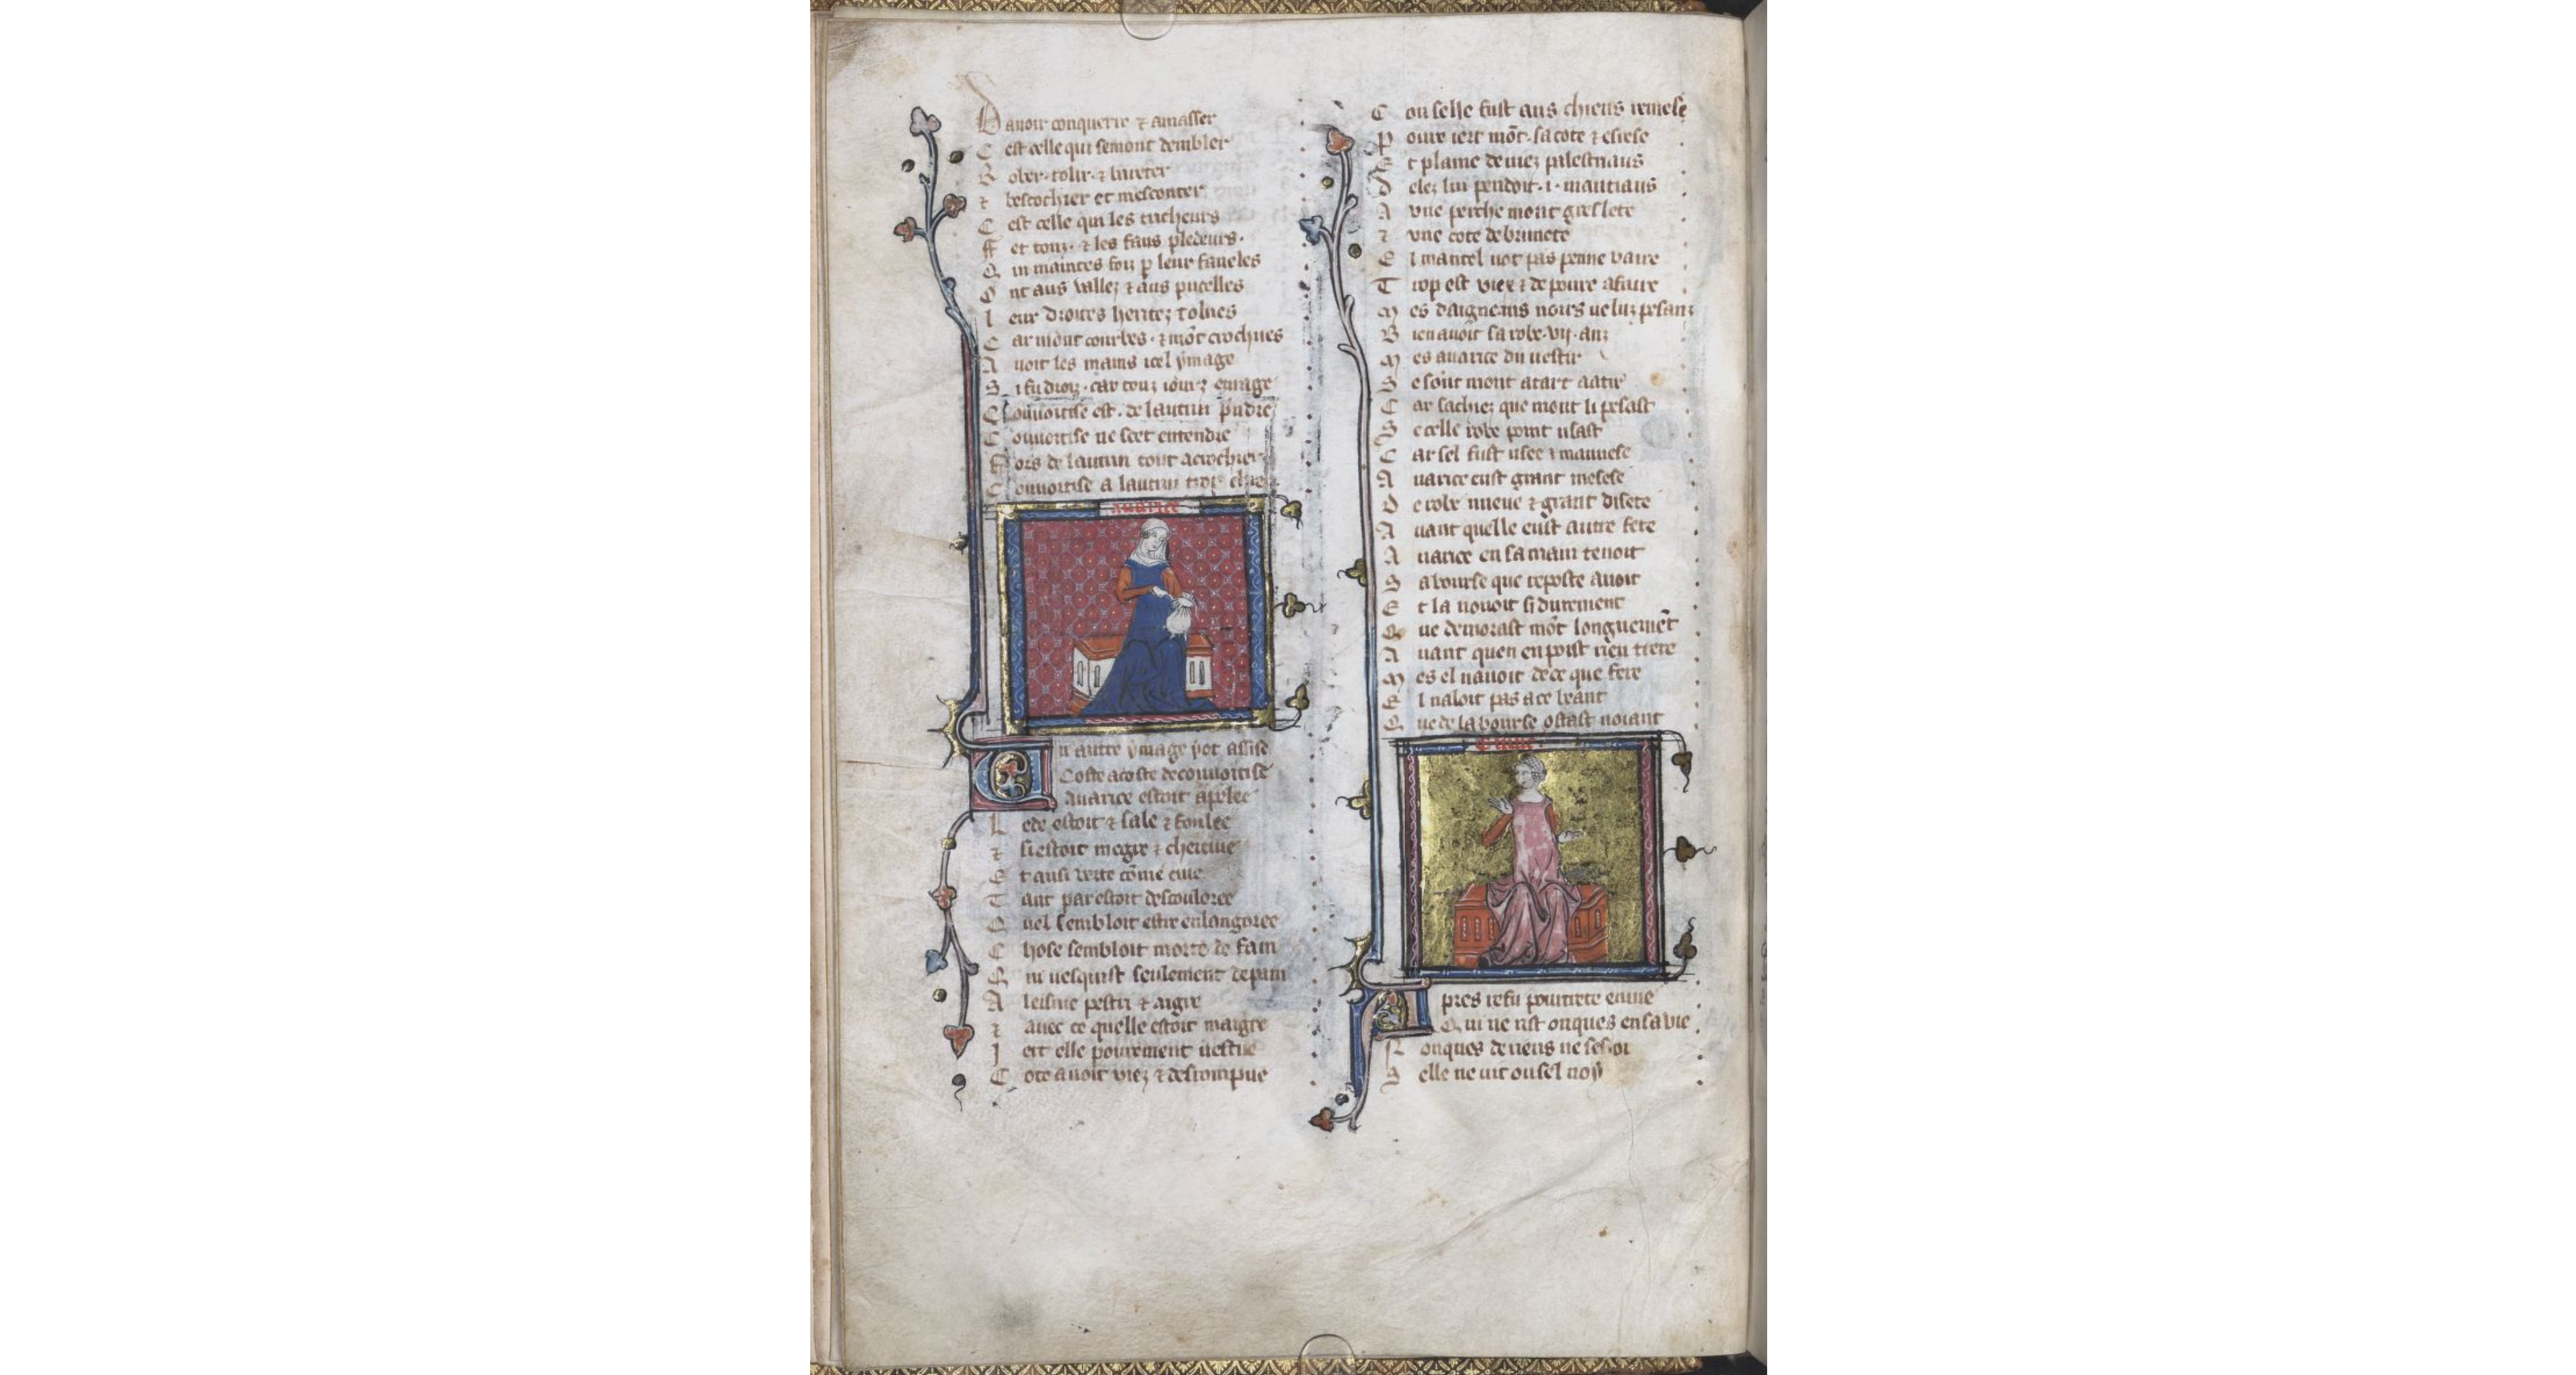 D avoir conquerre ⁊ amasser
C est celle qui semont dembler
R ober. tolir. ⁊ bareter
⁊ bescochier et mesconter
C est celle qui les tricheurs
F et touz. ⁊ les faus pledeurs.
Q ui maintes foiz p leur faveles
O nt aus vallez ⁊ aus pucelles
l eur droites heritez tolues
C ar mout courbes. ⁊ mõt crochues
A voit les mains icel ymage
S i fu droiz. car touz iourz enrage
C ouvoitise est. de lautrui pndre
C ouvoitise ne scet entendre
F ors de lautrui tout acrochier
C ouvoitise a lautrui trop chier
avarice
U n autre ymage yot assise
Coste a coste de couvoitise
Avarice estoit apelee
L ede estoit ⁊ sale ⁊ foulee
⁊ si estoit megre ⁊ chetive
E t ausi verte cõme cive
T ant par estoit descouloree
Q uel sembloit estre enlangoree
C hose sembloit morte de fain
Q ui vesquist seulement de pain
A lessive pestri ⁊ aigre
⁊ avec ce quelle estoit maigre
I ert elle povrement vestue
C ote avoit viez ⁊ desrompue
C on selle fust aus chiens remese
P ovre iert mõt. sa cote ⁊ esrese
E t plaine de viez palestriaus
D elez lui pendoit .i. mantiaus
A une perche mout greslete
⁊ une cote de brunete
E l mantel not pas penne vaire
T rop est viex ⁊ de povre afaire
M es daigneaus noirs veluz pesanz
B ien avoit sa robe .vij. anz
M es avarice du vestir
S e sout mont a tart aatir
C ar sachiez que mout li pesast
S e celle robe point usast
C ar sel fust usee ⁊ mauvese
A varice eust grant mesese
D e robe nueve ⁊ grant disete
A vant quelle eust autre fete
A varice en sa main tenoit
S a bourse que reposte avoit
E t la nouoit si durement
Q ue demorast mõt longuemẽt
A vant quen en poist rien trere
M es el navoit de ce que fere
E l naloit pas a ce beant
Q ue de la bourse ostast noiant
Envie
A pres refu pourtrete envie
Q ui ne rist onques en sa vie
N onques de riens ne sesioi
S elle ne vit ou sel noy